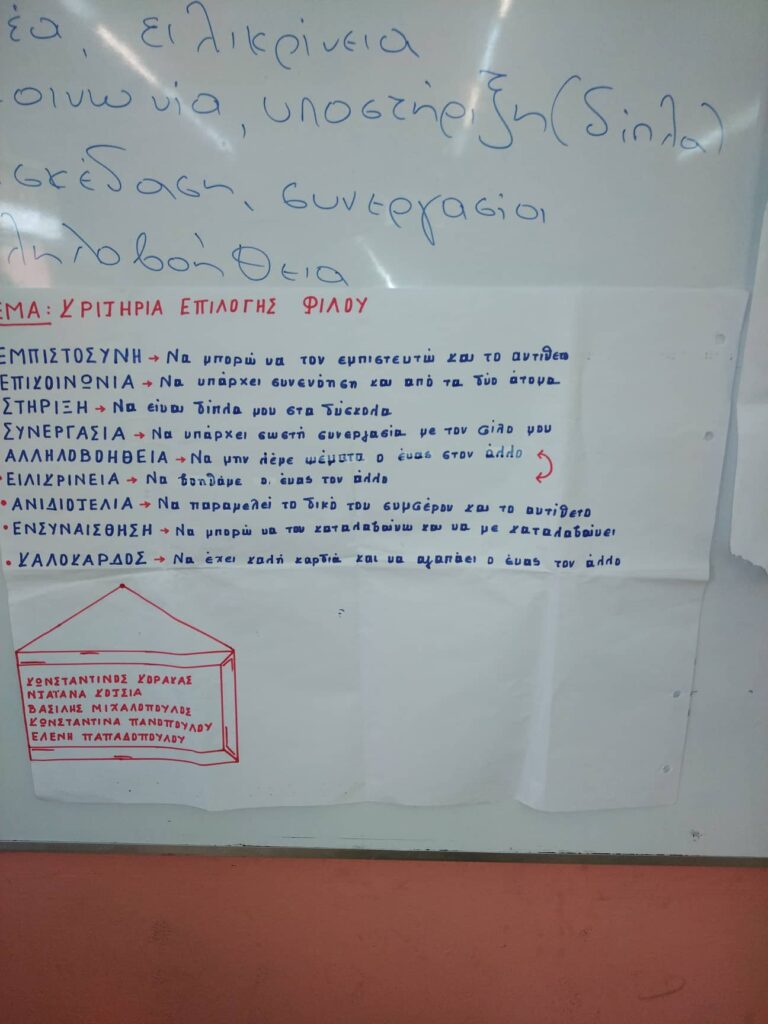 έα, ειλικρίνεια
οινωνία, υποστήριξη (δίπλα)
σκέδαση, συνεργασία
ληλοβοήθεια
ΕΜΑ: ΚΡΙΤΗΡΙΑ ΕΠΙΛΟΓΗΣ ΦΙΛΟΥ
ΕΜΠΙΣΤΟΣΥΝΗ → Να μπορώ να τον εμπιστευτώ και το αντίθετο
ΕΠΙΚΟΙΝΩΝΙΑ → Να υπάρχει συνενόηση και από τα δύο άτομα
ΣΤΗΡΙΞΗ → Να είναι δίπλα μου στα δύσκολα
ΣΥΝΕΡΓΑΣΙΑ → Να υπάρχει σωστή συνεργασία με τον φίλο μου
ΑΛΛΗΛΟΒΟΗΘΕΙΑ → Να μην λέμε ψέματα ο ένας στον άλλο
• ΕΙΛΙΚΡΙΝΕΙΑ → Να βοηθάμε ο ένας τον άλλο
• ΑΝΙΔΙΟΤΕΛΙΑ → Να παραμελεί το δικό του συμφέρον και το αντίθετο
• ΕΝΣΥΝΑΙΣΘΗΣΗ → Να μπορώ να τον καταλαβαίνω και να με καταλαβαίνει
• ΚΑΛΟΚΑΡΔΟΣ → Να έχει καλή καρδιά και να αγαπάει ο ένας τον άλλο
ΚΩΝΣΤΑΝΤΙΝΟΣ ΚΟΡΑΚΑΣ
ΝΤΑΤΑΝΑ ΚΟΤΣΙΑ
ΒΑΣΙΛΗΣ ΜΙΧΑΛΟΠΟΥΛΟΣ
ΚΩΝΣΤΑΝΤΙΝΑ ΠΑΝΟΠΟΥΛΟΥ
ΕΛΕΝΗ ΠΑΠΑΔΟΠΟΥΛΟΥ